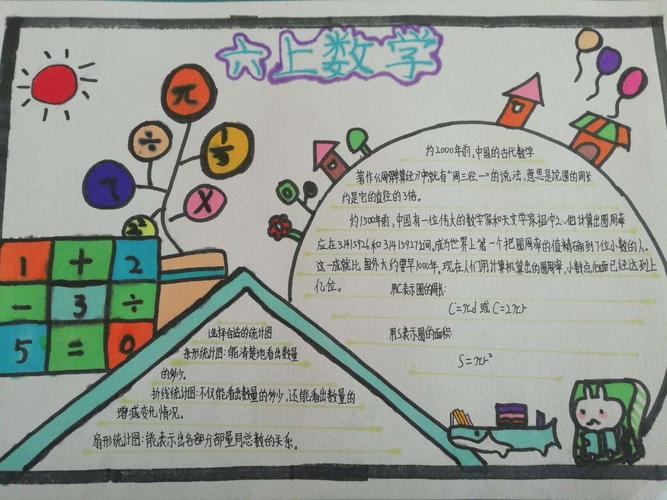 六上数学
π
÷
1/3
7
X
1 + 2
- 3 ÷
5 = 0
约2000年前,中国的古代数学
著作《周髀算经》中就有“周三径一”的说法,意思是说圆的周长
约是它的直径的3倍。
约1500年前,中国有一位伟大的数学家和天文学家祖冲之.他计算出圆周率
应在3.1415926和3.1415927之间,成为世界上第一个把圆周率的值精确到7位小数的人.
这一成就比国外大约要早1000年.现在人们用计算机算出的圆周率,小数点后面已经达到上
亿位。
用C表示圆的周长:
C=πd 或 C=2πr
用S表示圆的面积:
S=πr²
选择合适的统计图
条形统计图:能清楚地看出数量
的多少。
折线统计图:不仅能看出数量的多少,还能看出数量的
增减变化情况。
扇形统计图:能表示出各部分部量同总数的关系。